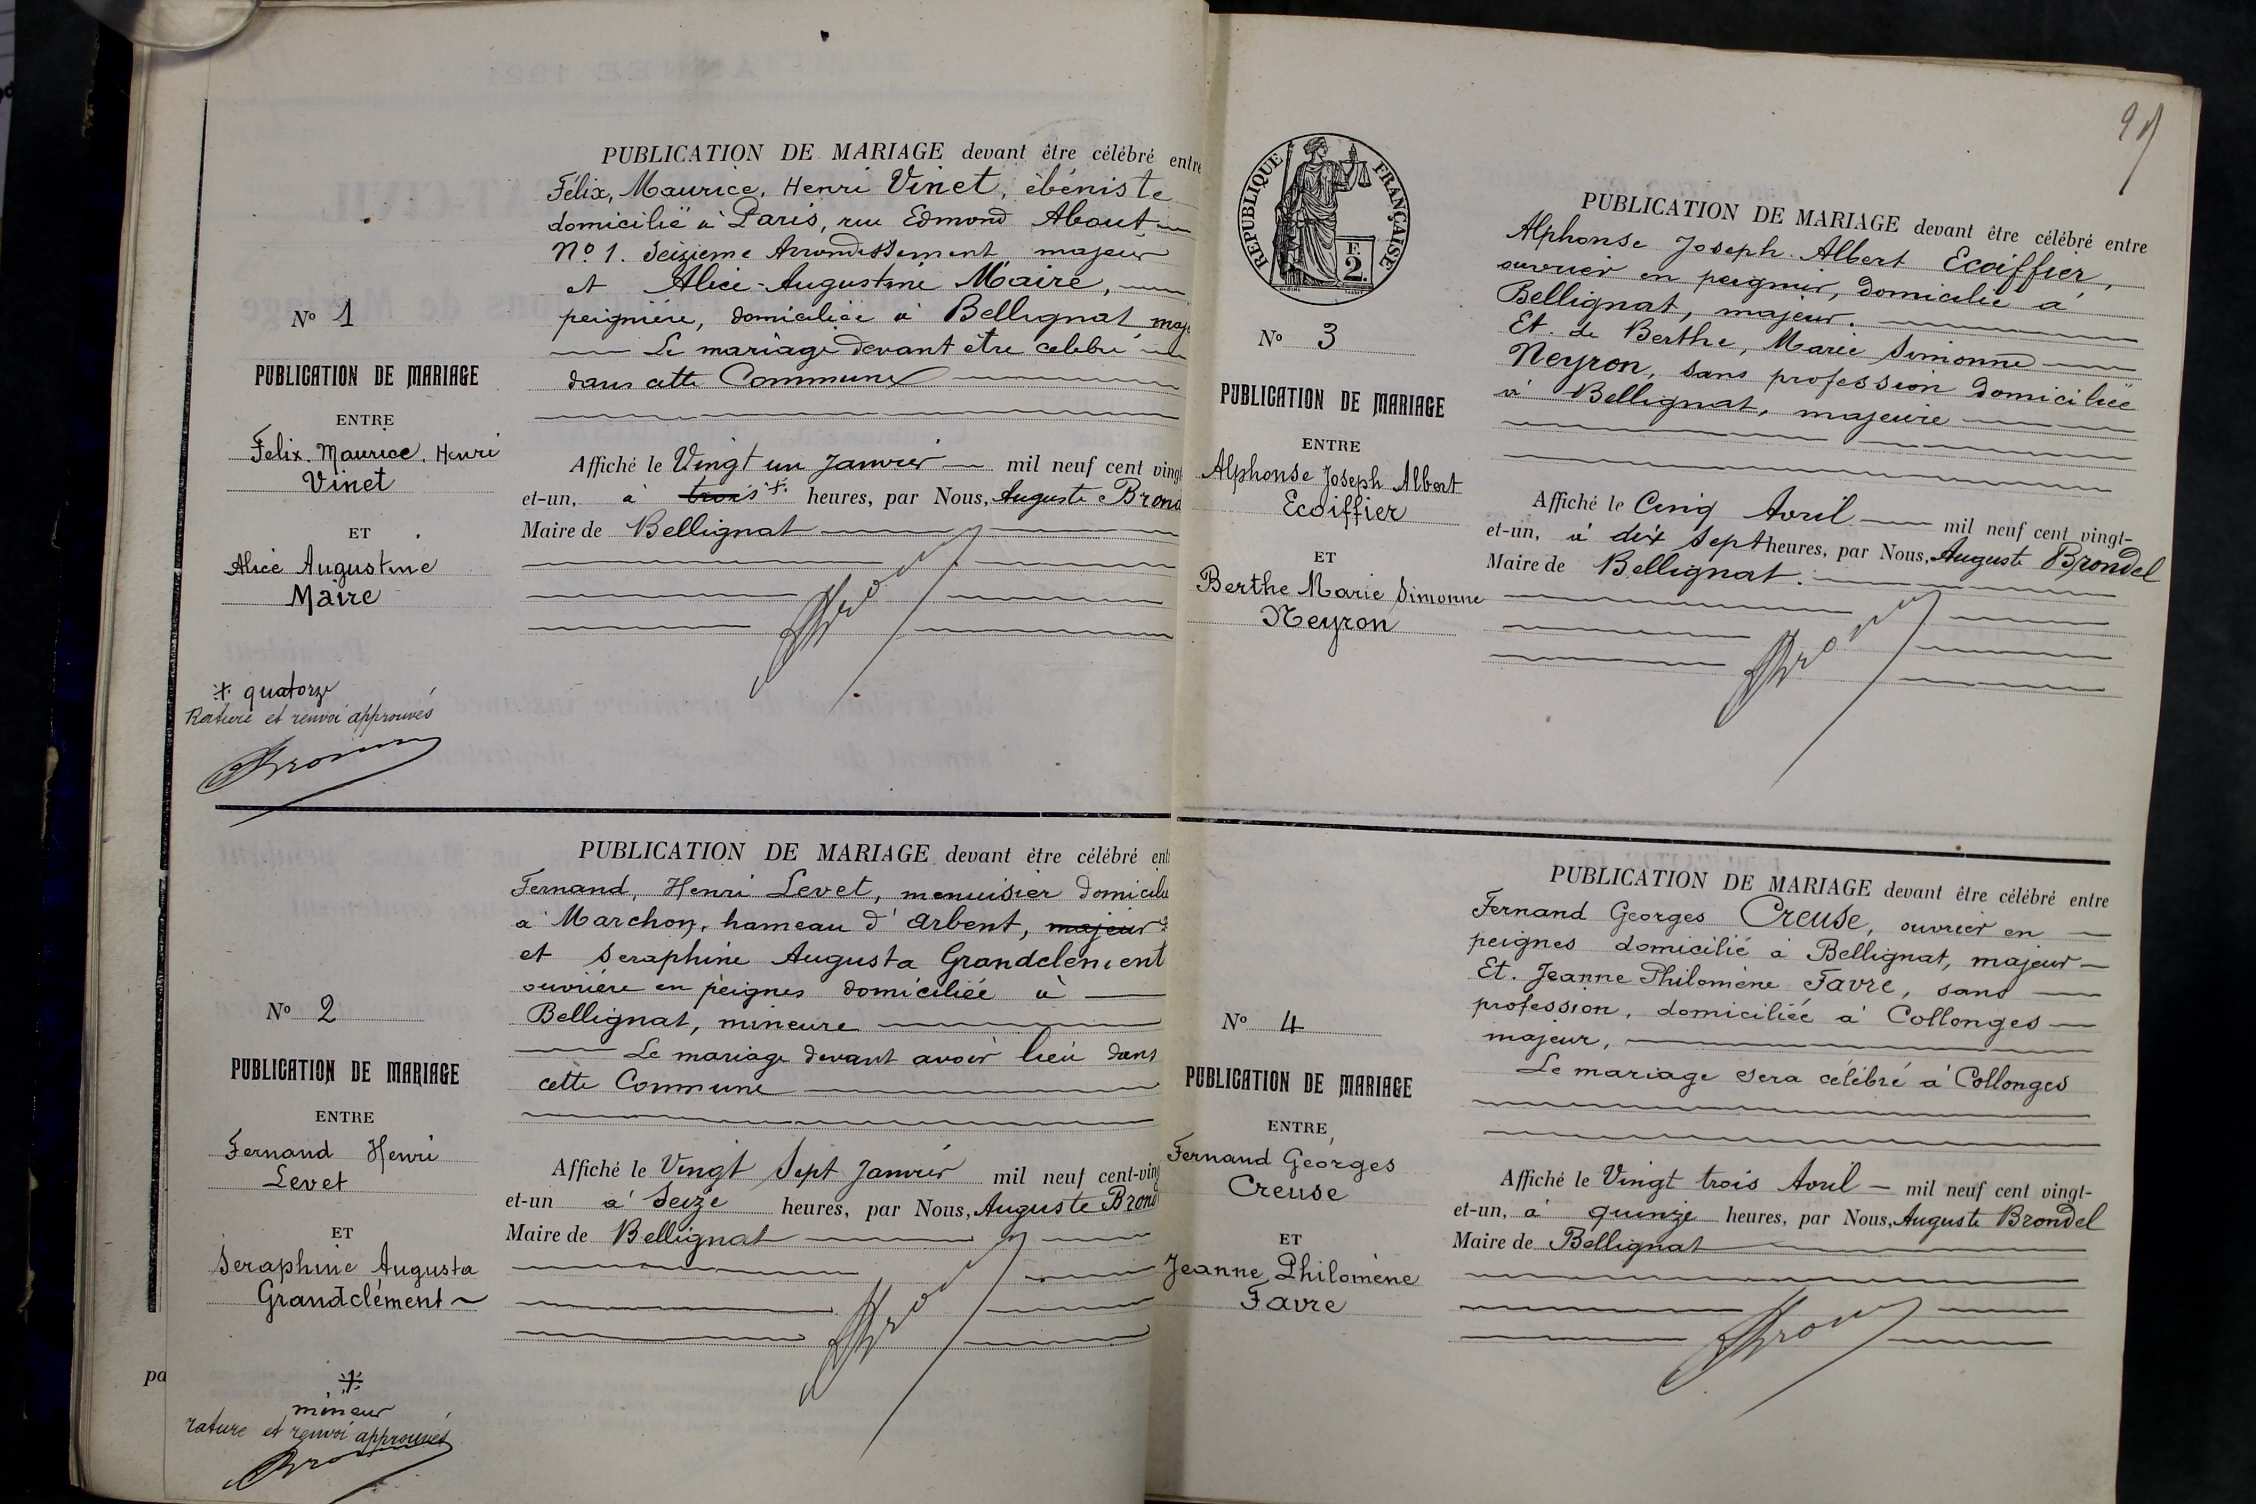 PUBLICATION DE MARIAGE devant être célébré entre
Félix, Maurice, Henri Vinet, ébéniste
domicilié à Paris, rue Edmond About
No 1. Seizième Arrondissement, majeur
et Alice-Augustine Maire,
peignière, domiciliée à Bellignat, maje
Le mariage devant être célébré
dans cette Commune
Affiché le Vingt un Janvier mil neuf cent vingt
et-un, à trois heures, par Nous, Auguste Brond
Maire de Bellignat
No 1
PUBLICATION DE MARIAGE
ENTRE
Felix. Maurice. Henri
Vinet
ET
Alice Augustine
Maire
quatorze
Rature et renvoi approuvés
PUBLICATION DE MARIAGE devant être célébré ent
Fernand, Henri Levet, menuisier domicilié
à Marchon, hameau d'Arbent, majeur
et Seraphine Augusta Grandclément
ouvrière en peignes domiciliée à
Bellignat, mineure
Le mariage devant avoir lieu dans
cette Commune
Affiché le Vingt Sept Janvier mil neuf cent-ving
et-un à Seize heures, par Nous, Auguste Brond
Maire de Bellignat
No 2
PUBLICATION DE MARIAGE
ENTRE
Fernand Henri
Levet
ET
Seraphine Augusta
Grandclément
mineur
rature et renvoi approuvés
pa
95
RÉPUBLIQUE FRANÇAISE
F
2
PUBLICATION DE MARIAGE devant être célébré entre
Alphonse Joseph Albert Ecoiffier,
ouvrier en peignes, domicilié à
Bellignat, majeur.
Et. de Berthe, Marie Simonne
Neyron, sans profession domiciliée
à Bellignat, majeure
Affiché le Cinq Avril mil neuf cent vingt-
et-un, à dix sept heures, par Nous, Auguste Brondel
Maire de Bellignat.
No 3
PUBLICATION DE MARIAGE
ENTRE
Alphonse Joseph Albert
Ecoiffier
ET
Berthe Marie Simonne
Neyron
PUBLICATION DE MARIAGE devant être célébré entre
Fernand Georges Creuse, ouvrier en
peignes domicilié à Bellignat, majeur
Et. Jeanne Philomène Favre, sans
profession, domiciliée à Collonges
majeur,
Le mariage sera célébré à Collonges
Affiché le Vingt trois Avril mil neuf cent vingt-
et-un, à quinze heures, par Nous, Auguste Brondel
Maire de Bellignat
No 4
PUBLICATION DE MARIAGE
ENTRE
Fernand Georges
Creuse
ET
Jeanne Philomène
Favre